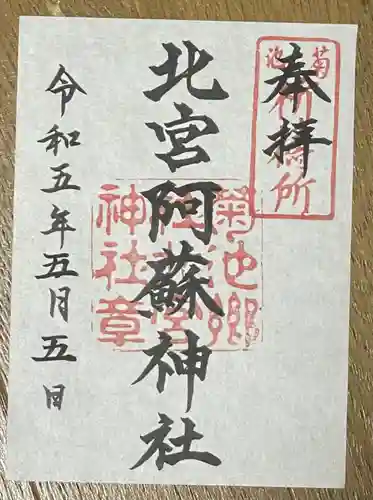 奉拝
北宮阿蘇神社
令和五年五月五日
菊池
所
菊池郷
神社章